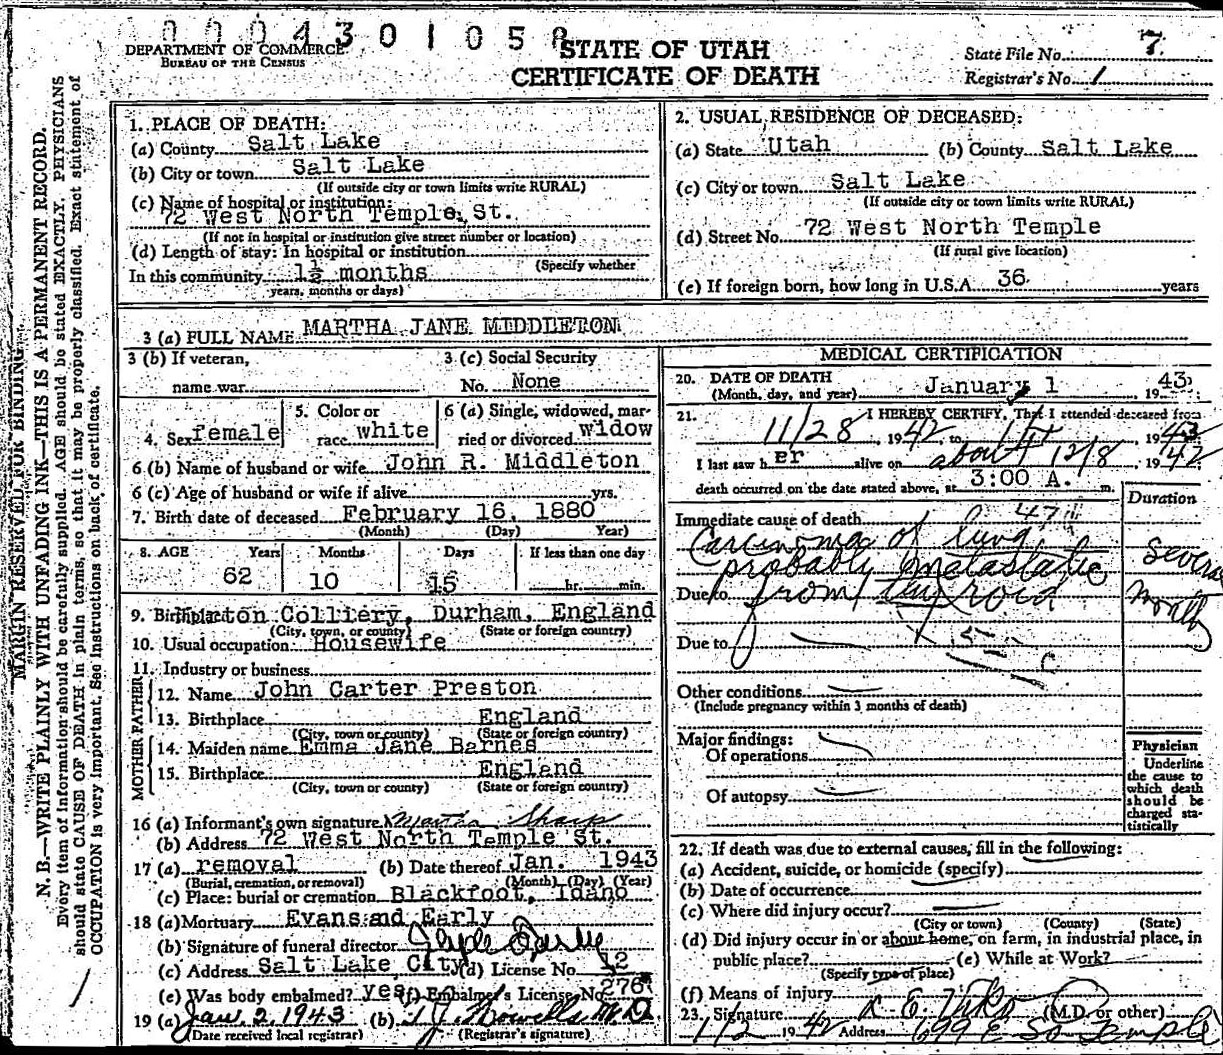 0004301058
DEPARTMENT OF COMMERCE
BUREAU OF THE CENSUS
STATE OF UTAH
CERTIFICATE OF DEATH
State File No. 7
Registrar's No. 1
MARGIN RESERVED FOR BINDING
N. B.—WRITE PLAINLY WITH UNFADING INK—THIS IS A PERMANENT RECORD.
Every item of information should be carefully supplied. AGE should be stated EXACTLY. PHYSICIANS
should state CAUSE OF DEATH in plain terms, so that it may be properly classified. Exact statement of
OCCUPATION is very important. See instructions on back of certificate.
1. PLACE OF DEATH:
(a) County Salt Lake
(b) City or town Salt Lake
(If outside city or town limits write RURAL)
(c) Name of hospital or institution:
72 West North Temple St.
(If not in hospital or institution give street number or location)
(d) Length of stay: In hospital or institution
(Specify whether
In this community 1½ months
years, months or days)
2. USUAL RESIDENCE OF DECEASED:
(a) State Utah (b) County Salt Lake
(c) City or town Salt Lake
(If outside city or town limits write RURAL)
(d) Street No. 72 West North Temple
(If rural give location)
(e) If foreign born, how long in U.S.A. 36 years
3 (a) FULL NAME MARTHA JANE MIDDLETON
3 (b) If veteran,
name war
3 (c) Social Security
No. None
4. Sex female
5. Color or
race white
6 (a) Single, widowed, mar-
ried or divorced widow
6 (b) Name of husband or wife John R. Middleton
6 (c) Age of husband or wife if alive yrs.
7. Birth date of deceased February 16, 1880
(Month) (Day) Year)
8. AGE Years Months Days If less than one day
62 10 15 hr. min.
9. Birthplace Colliery, Durham, England
(City, town, or county) (State or foreign country)
10. Usual occupation Housewife
11. Industry or business
FATHER
12. Name John Carter Preston
13. Birthplace England
(City, town or county) (State or foreign country)
MOTHER
14. Maiden name Emma Jane Barnes
15. Birthplace England
(City, town or county) (State or foreign country)
16 (a) Informant's own signature Martha Sharp
(b) Address 72 West North Temple St.
17 (a) removal (b) Date thereof Jan. 1943
(Burial, cremation, or removal) (Month) (Day) (Year)
(c) Place: burial or cremation Blackfoot, Idaho
18 (a) Mortuary Evans and Early
(b) Signature of funeral director
(c) Address Salt Lake City (d) License No. 12
(e) Was body embalmed? yes (f) Embalmer's License No. 276
19 (a) Jan. 2, 1943 (b) T. J. Howells M.D.
(Date received local registrar) (Registrar's signature)
MEDICAL CERTIFICATION
20. DATE OF DEATH
(Month, day, and year) January 1 1943
21. I HEREBY CERTIFY, That I attended deceased from
11/28, 1942, to 1st, 1943
I last saw her alive on about 12/8, 1942
death occurred on the date stated above, at 3:00 A. m.
Duration
Immediate cause of death 47
Carcinoma of lung,
probably metastatic
Due to from thyroid
Several
months
Due to
55
Other conditions
(Include pregnancy within 3 months of death)
Major findings:
Of operations
Of autopsy
Physician
Underline
the cause to
which death
should be
charged sta-
tistically
22. If death was due to external causes, fill in the following:
(a) Accident, suicide, or homicide (specify)
(b) Date of occurrence
(c) Where did injury occur?
(City or town) (County) (State)
(d) Did injury occur in or about home, on farm, in industrial place, in
public place? (e) While at Work?
(Specify type of place)
(f) Means of injury
23. Signature (M.D. or other)
1/2 1942 Address 699 E So Temple